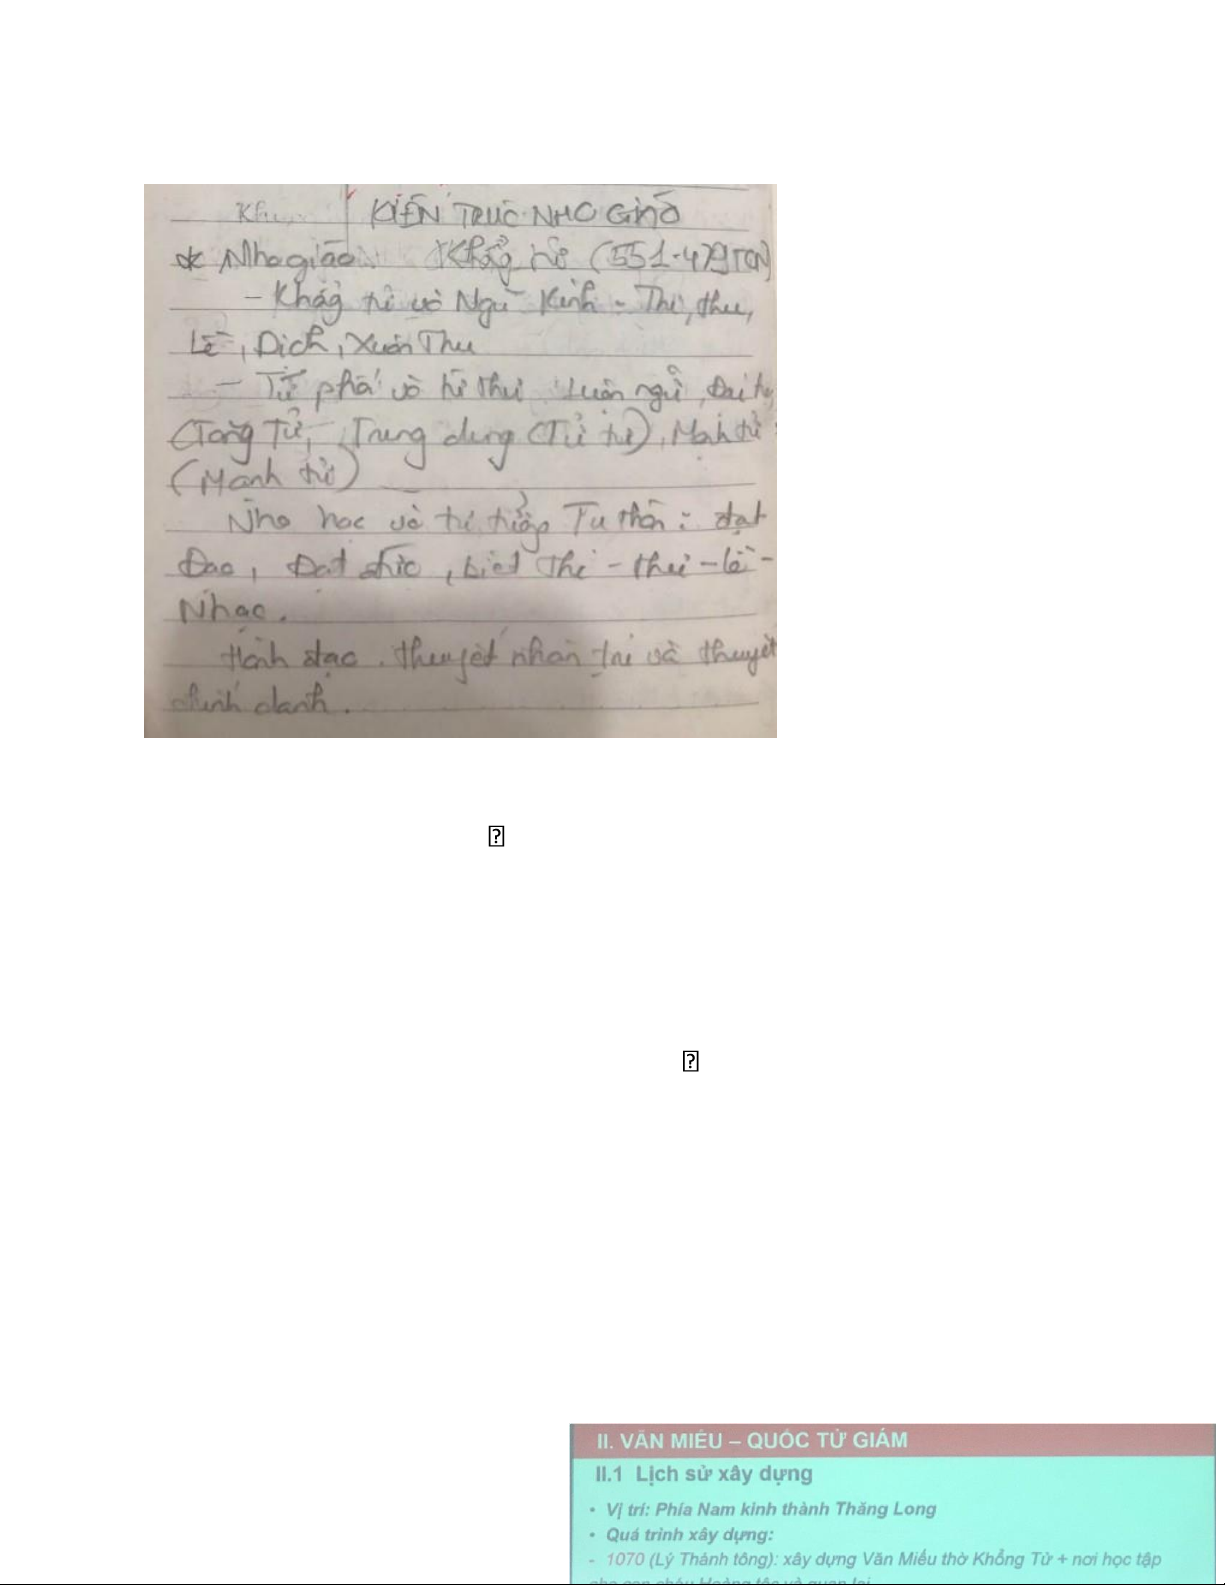 KIẾN TRÚC NHO GIÁO
* Nho giáo: Khổng tử (551-479 TCN)
- Khổng tử và Ngũ Kinh - Thi, thư,
Lễ, Dịch, Xuân Thu
- Tứ phối và tứ thư Luận ngữ, Đại
(Tăng Tử, Trung dung (Tử tư), Mạnh tử
(Mạnh tử)
Nho học và tư tưởng Tu thân: đạt
Đạo, Đạt đức, biết thi - thư - lễ -
Nhạc.
Hành đạo. thuyết nhân trị và thuyết
chính danh.
II. VĂN MIẾU – QUỐC TỬ GIÁM
II.1 Lịch sử xây dựng
• Vị trí: Phía Nam kinh thành Thăng Long
• Quá trình xây dựng:
- 1070 (Lý Thánh tông): xây dựng Văn Miếu thờ Khổng Tử + nơi học tập
cho con cháu Hoàng tộc và quan lại